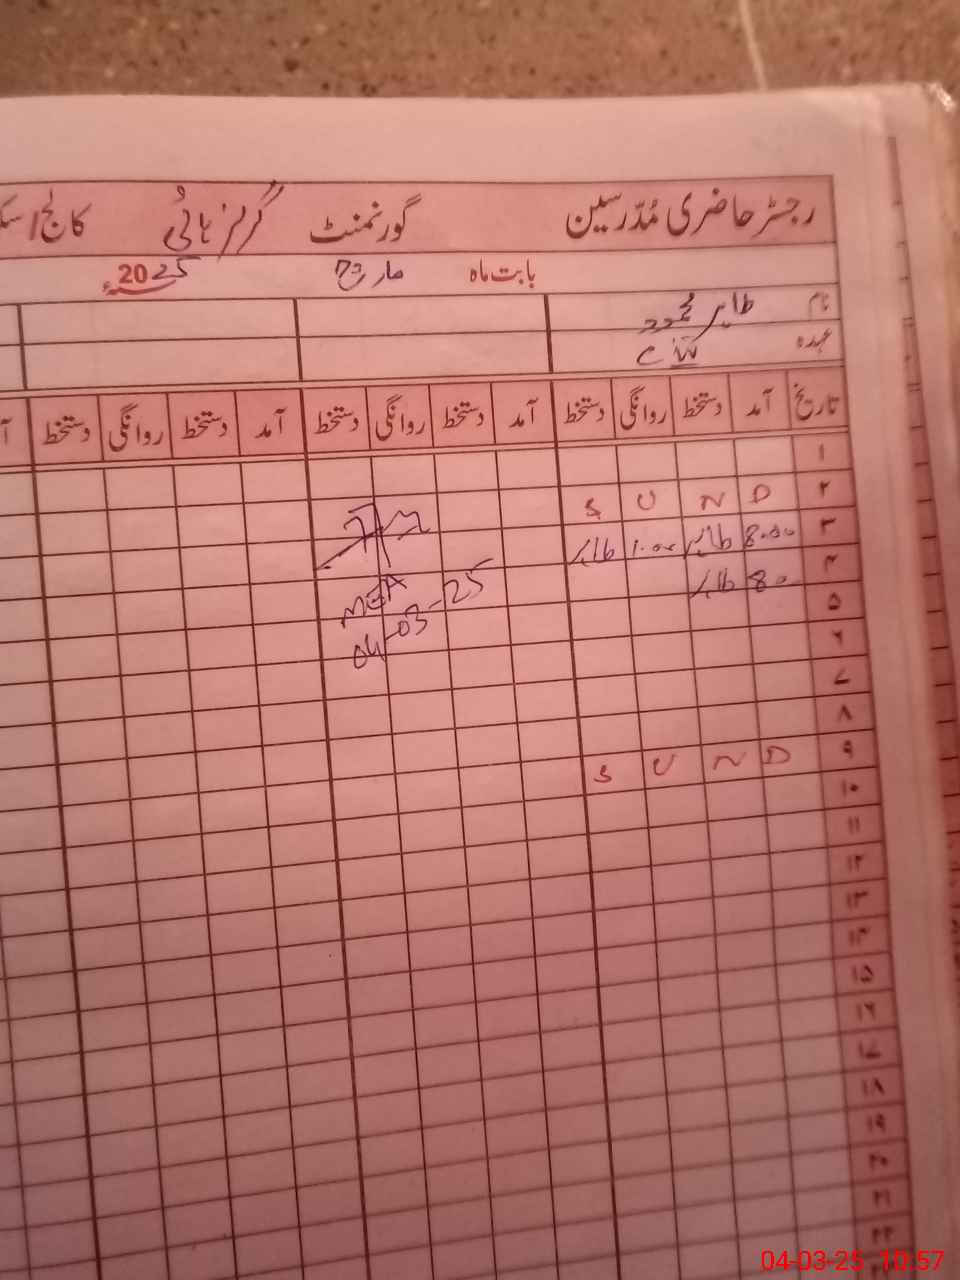 رجسٹر حاضری مُدّرسین گورنمنٹ گرلز ہائی کالج / اسک
بابت ماہ مارچ 2025
نام طاہر محمود
عہدہ
تاریخ آمد دستخط روانگی دستخط آمد دستخط روانگی دستخط آمد دستخط روانگی دستخط آ
۱
۲ S U N D
۳ 8.00 طاہر 1.00 طاہر
۴ 80 طاہر
۵
MEA
04-03-25
۶
۷
۸
۹ S U N D
۱۰
۱۱
۱۲
۱۳
۱۴
۱۵
۱۶
۱۷
۱۸
۱۹
۲۰
۲۱
۲۲
04-03-25 10:57